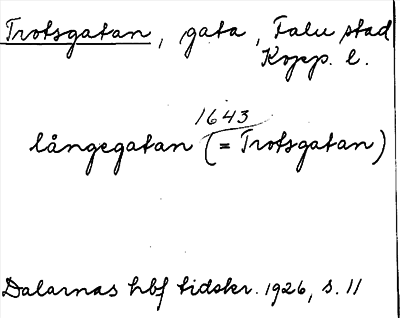 Trotsgatan, gata, Falu stad
Kopp. l.
1643
långegatan (= Trotsgatan)
Dalarnas hbf tidskr. 1926, s. 11